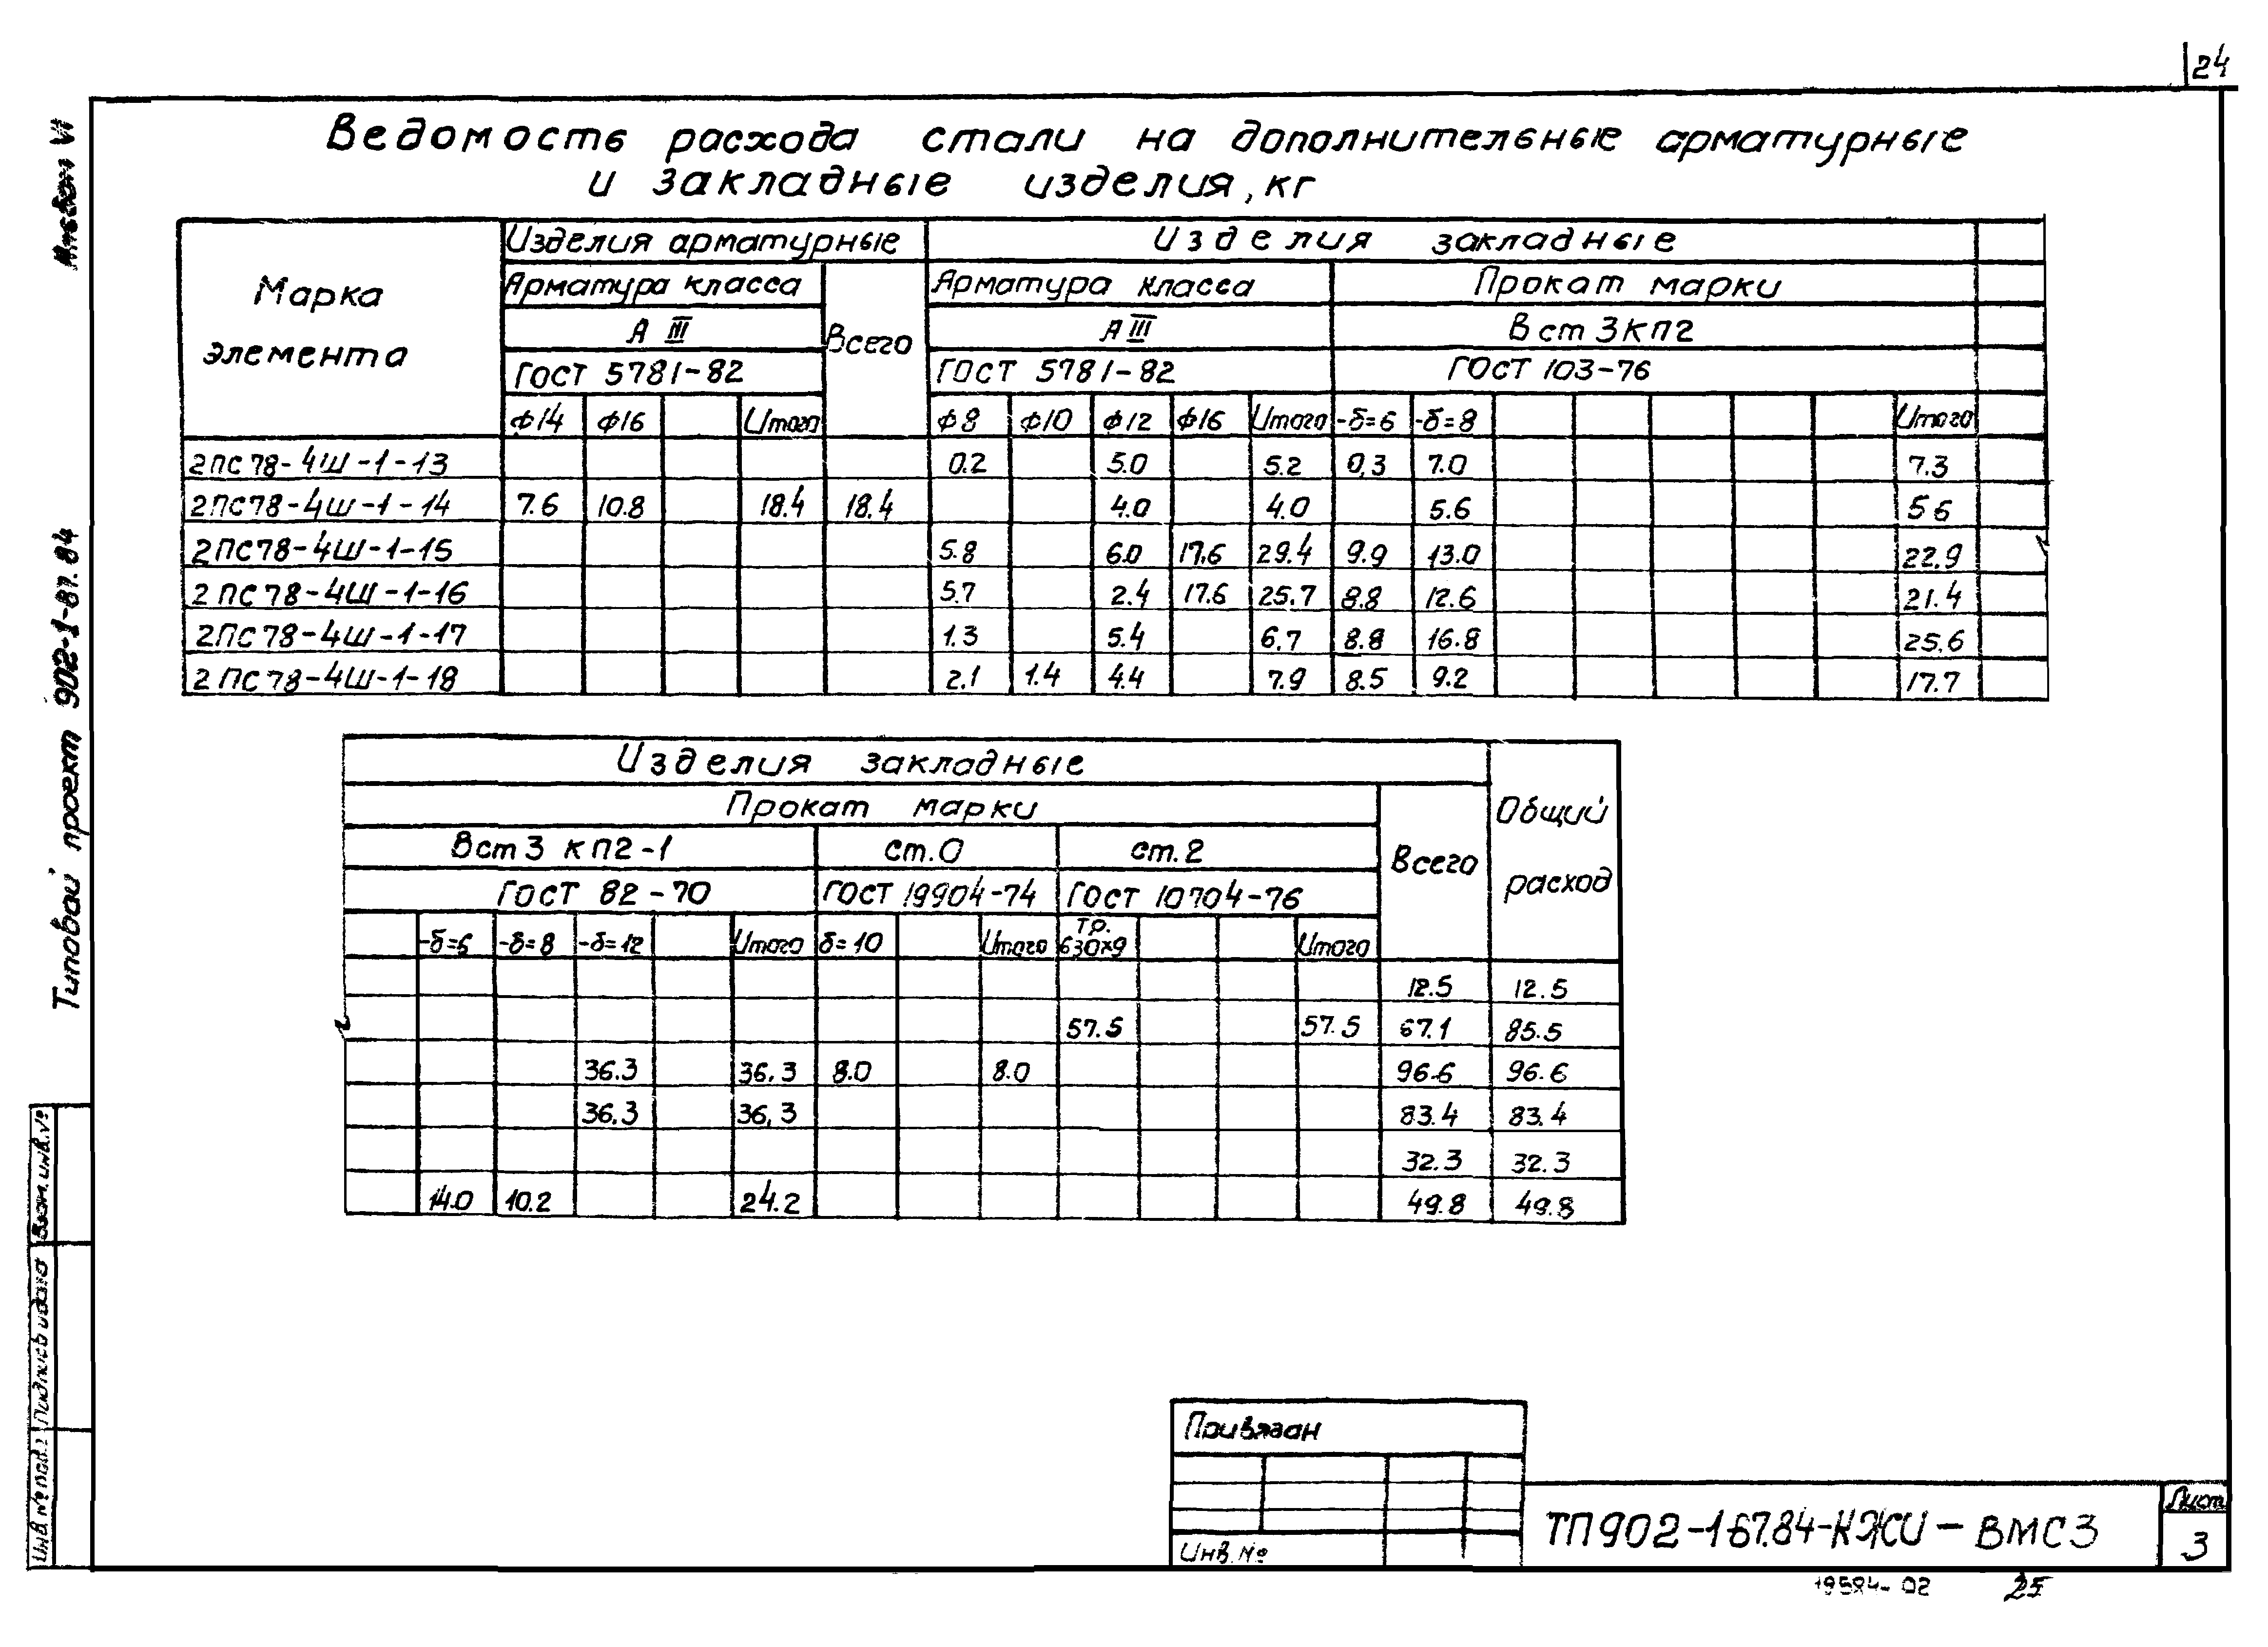 24
Ведомость расхода стали на дополнительные арматурные
и закладные изделия, кг
Марка элемента
Изделия арматурные
Изделия закладные
Арматура класса
Всего
Арматура класса
Прокат марки
А III
А III
Вст 3 КП2
ГОСТ 5781-82
ГОСТ 5781-82
ГОСТ 103-76
Ф14 Ф16 Итого Ф8 Ф10 Ф12 Ф16 Итого -δ=6 -δ=8 Итого
2ПС78-4Ш-1-13 0.2 5.0 5.2 0,3 7.0 7.3
2ПС78-4Ш-1-14 7.6 10.8 18.4 18.4 4.0 4.0 5.6 5 6
2ПС78-4Ш-1-15 5.8 6.0 17.6 29.4 9.9 13.0 22.9
2ПС78-4Ш-1-16 5.7 2.4 17.6 25.7 8.8 12.6 21.4
2ПС78-4Ш-1-17 1.3 5.4 6.7 8.8 16.8 25.6
2ПС78-4Ш-1-18 2.1 1.4 4.4 7.9 8.5 9.2 17.7
Изделия закладные
Общий расход
Прокат марки
Всего
Вст3 КП2-1 ст.0 ст.2
ГОСТ 82-70 ГОСТ 19904-74 ГОСТ 10704-76
-δ=6 -δ=8 -δ=12 Итого δ=10 Итого тр. 630х9 Итого
12.5 12.5
57.5 57.5 67.1 85.5
36.3 36.3 8.0 8.0 96.6 96.6
36.3 36,3 83.4 83.4
32.3 32.3
14.0 10.2 24.2 49.8 49.8
Привязан
Инв. №
ТП902-1-67.84-КЖИ-ВМС3
Лист
3
19584-02 25
Типовой проект 902-1-87.84
Взам. инв. №
Подпись и дата
Инв. № подл.